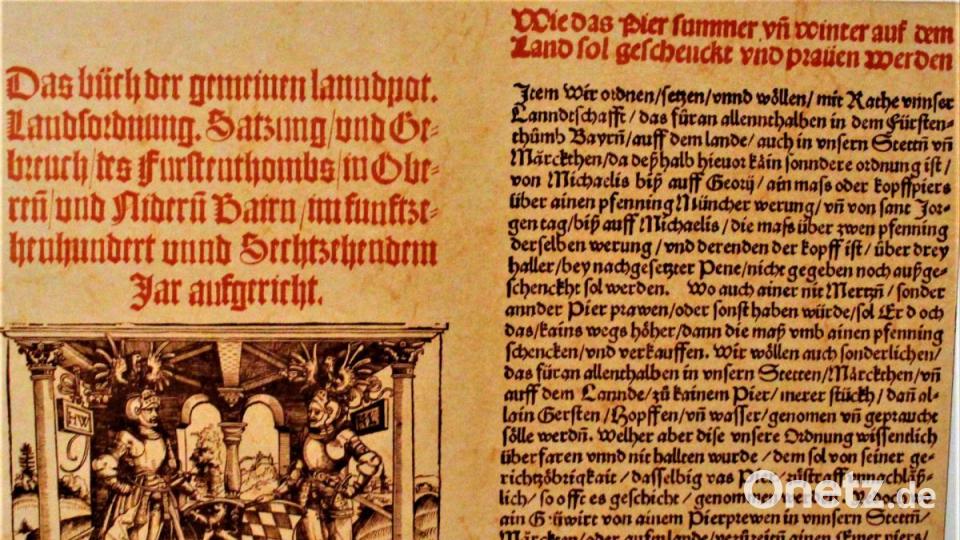 Das bůch der gemeinen lanndpot.
Landsordnung. Satzung/vnd Ge-
breuch/des Furstenthombs/in Obe-
ren̄/vnd Nidern̄ Bairn/im funftze-
henhundert vnnd Sechtzehendem
Jar aufgericht.
HW
Wie das Pier summer vn̄ winter auf dem
Land sol geschenckt vnd praüen werden
Item Wir ordnen/setzen/vnnd wöllen/mit Rathe vnnser
Lanndtschafft/das für an allennthalben in dem Fürsten-
thůmb Bayrn̄/auff dem lande/auch in vnsern Stetten vn̄
Märckthen/da deßhalb hieuor käin sonndere ordnung ist/
von Michaelis biß auff Georij/ain mass oder kopffpiers
über ainen pfenning Müncher werung/vn̄ von sant Jor-
gen tag/biß auff Michaelis/die mass über zwen pfenning
derselben werung/vnd derenden der kopff ist/über drey
haller/bey nachgesetzter Pene/nicht gegeben noch außge-
schenckht sol werden. Wo auch ainer nit Mertzn̄/sonder
annder Pier prawen/oder sonst haben würde/sol Er doch
das/kains wegs höher/dann die maß vmb ainen pfenning
schencken/vnd verkauffen. Wir wöllen auch sonderlichen/
das für an allenthalben in vnsern Stetten/Märckthen/vn̄
auff dem Lannde/zů kainem Pier/merer stückh/dan̄ al-
lain Gersten/Hopffen/vn̄ wasser/genomen vn̄ gepraucht
sölle werdn̄. Welher aber dise vnsere Ordnung wissendlich
überfaren vnnd nit hallten wurde/dem sol von seiner ge-
richtzöbrigkait/dasselbig vas Pier/zůstraff vnnachläß-
lich/so offt es geschicht/genommen werden. Yedoch wo
ain Güwirt von ainem Pierprewen in vnnsern Stetten̄/
Märckten/oder aufm lande/yezůzeitn ainen Emer piers/
Onetz.de